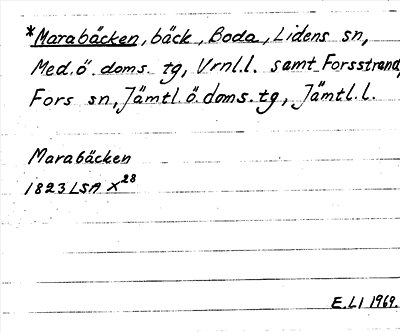 *Marabäcken, bäck, Boda, Lidens sn,
Med. ö. doms. tg, Vrnl.l. samt Forsstrand,
Fors sn, Jämtl. ö. doms. tg, Jämtl. l.
Marabäcken
1823 LSA X28
E.LI 1969.